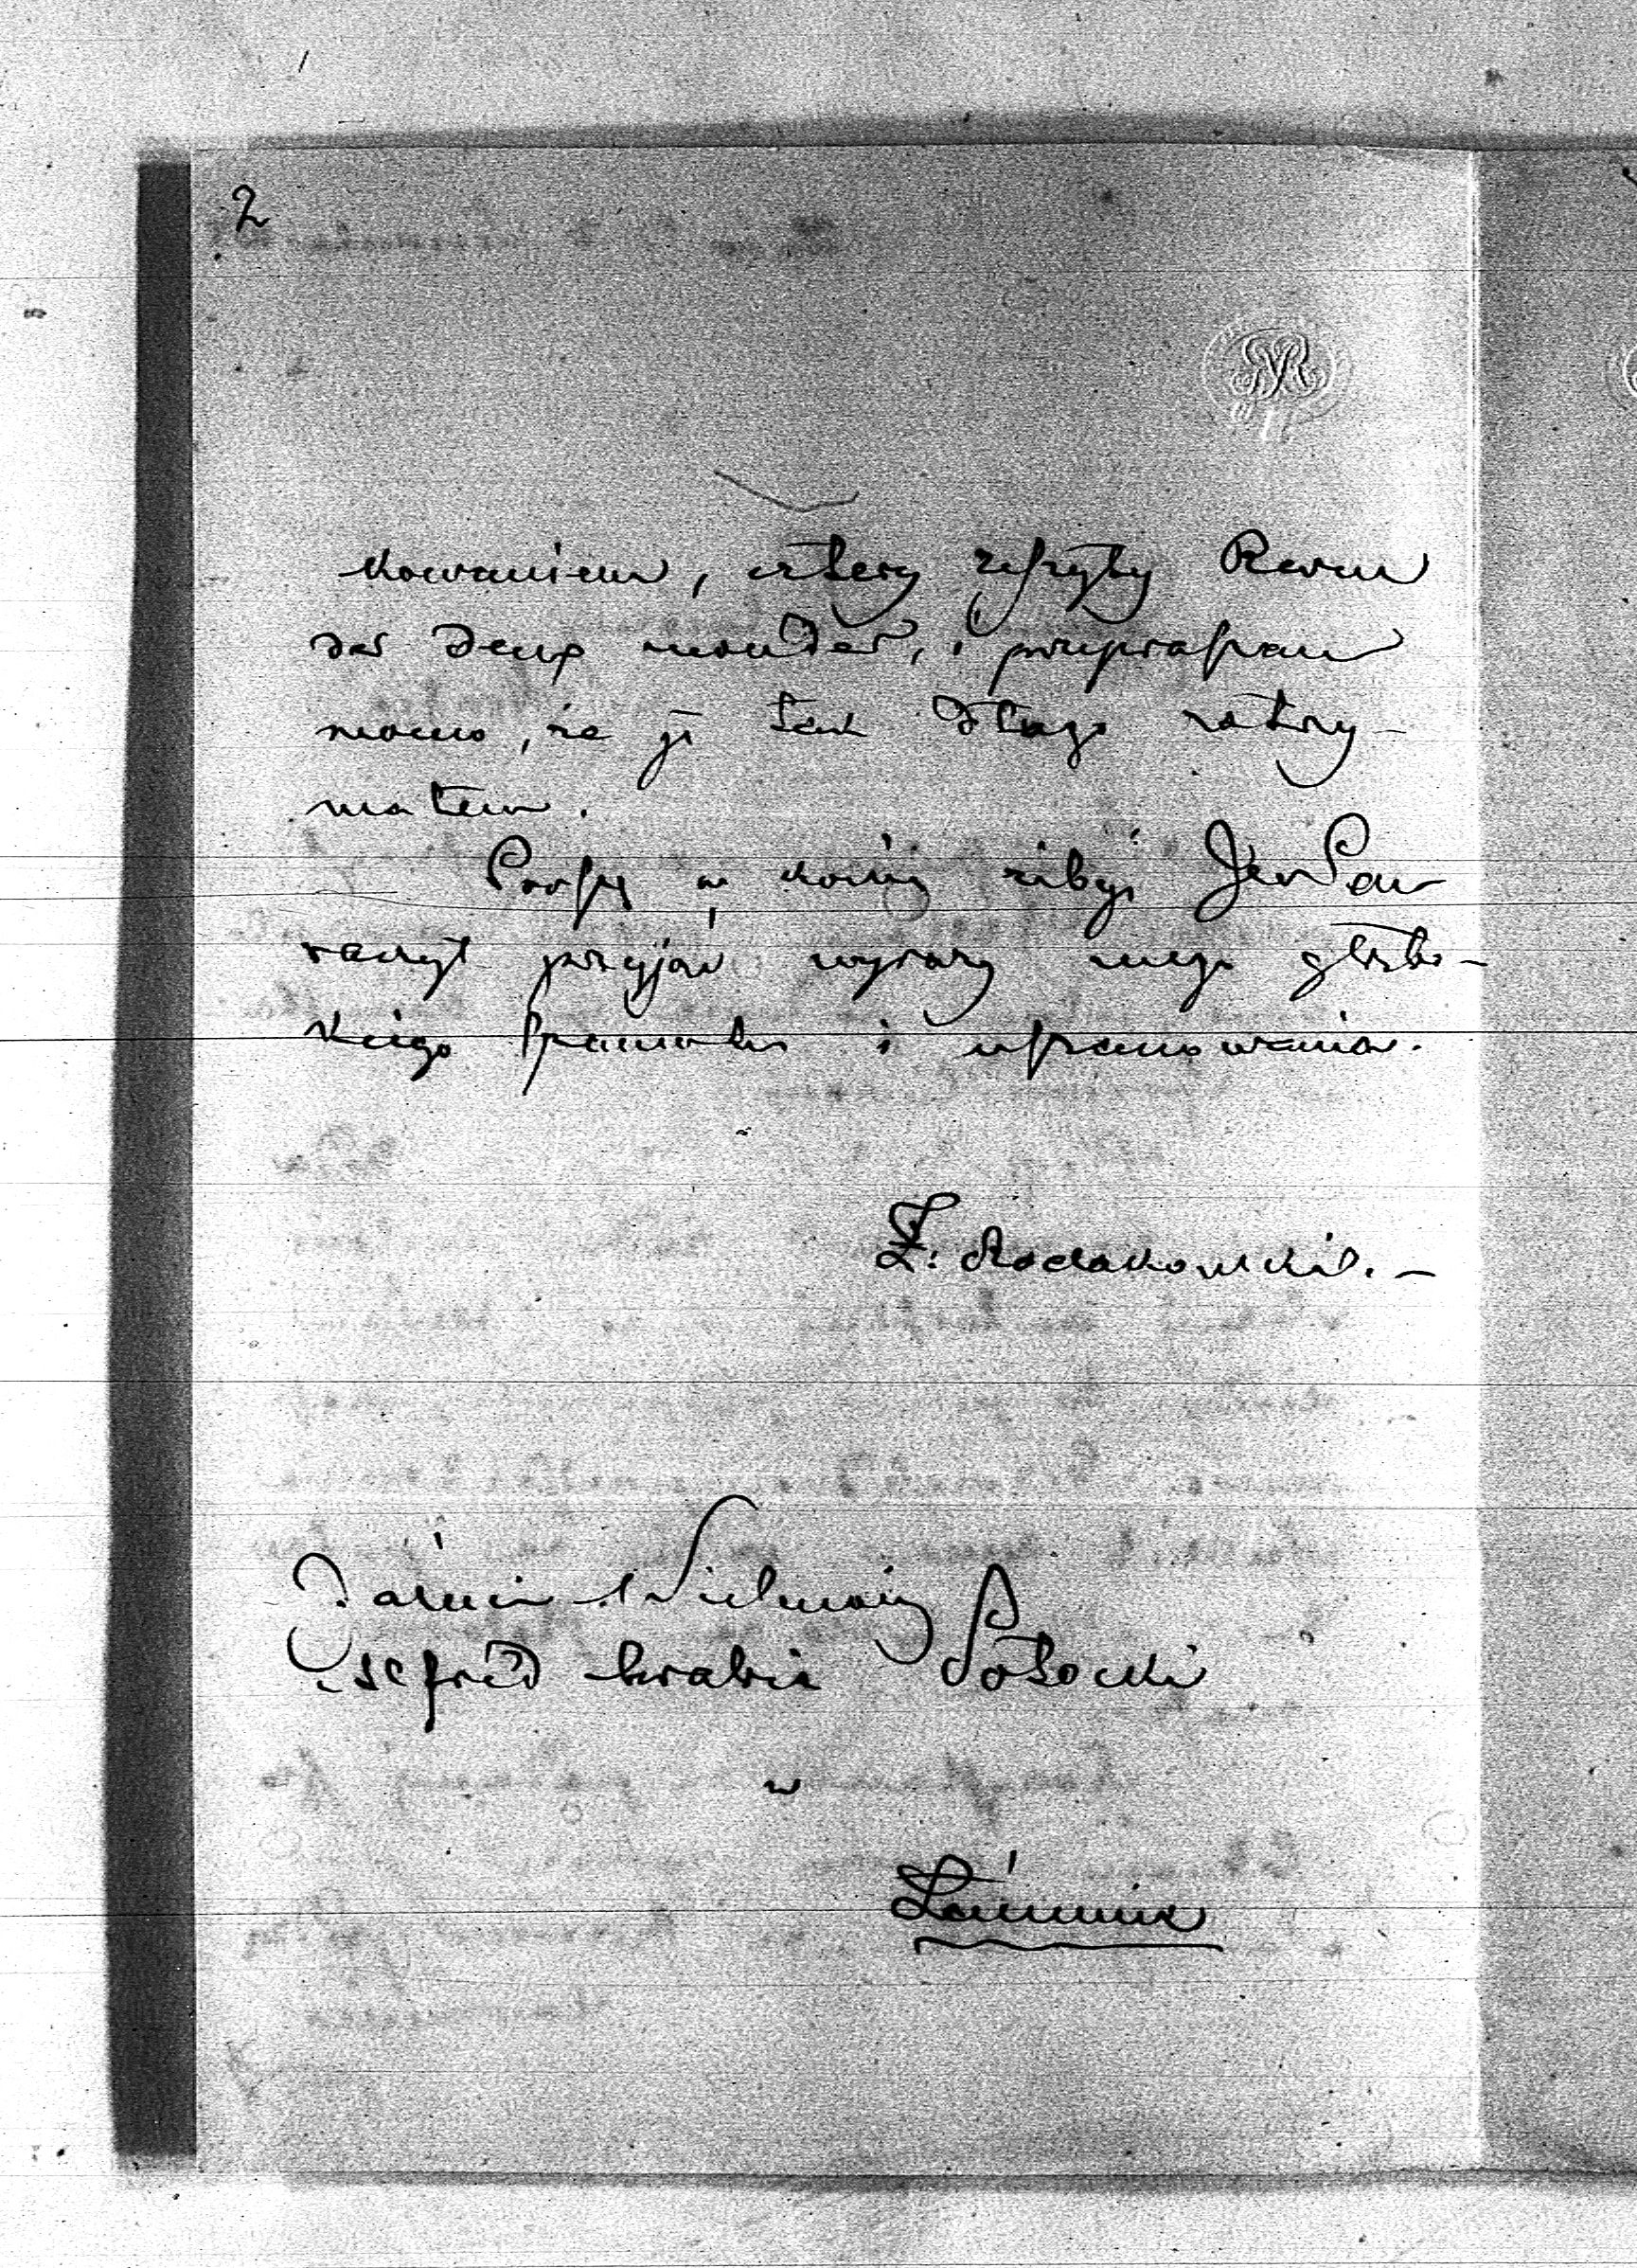 2
kowaniem, cztery zeszyty Revue
des deux mondes, i przepraszam
mocno, że je tak długo zatrzy-
małem.
Proszę w końcu żeby JW Pan
raczył przyjąć wyrazy mego głębo-
kiego szacunku i uszanowania.
Z. Rodakowski. -
Jaśnie Wielmożny
hrabia Potocki
w
Łańcucie